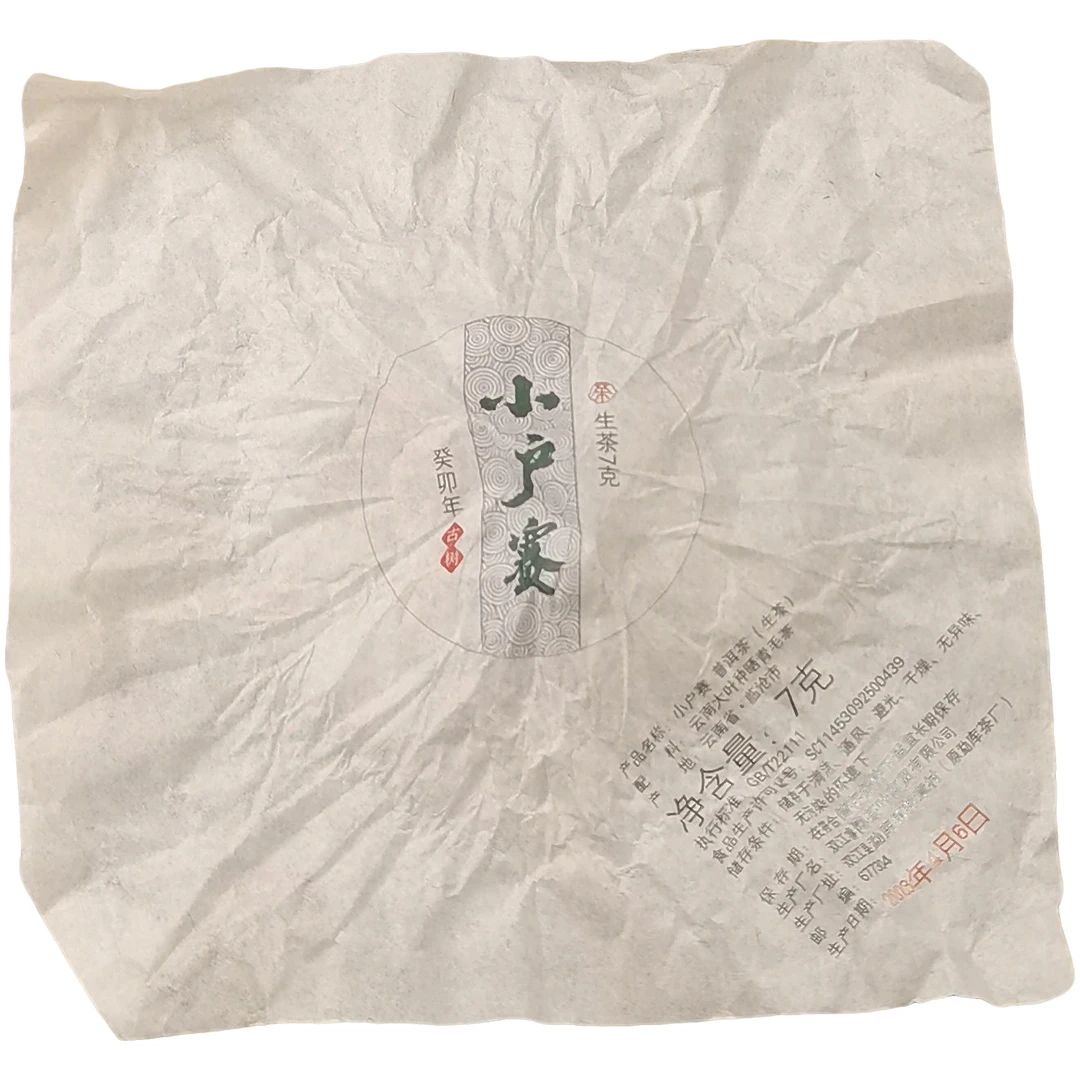 茶
生茶7克
小户赛
癸卯年
古树
产品名称：小户赛 普洱茶（生茶）
配料：云南大叶种晒青毛茶
产地：云南省·临沧市
净含量：7克
执行标准：GB/T22111
食品生产许可证号：SC11453092500439
储存条件：储存于清洁、通风、避光、干燥、无异味、
无污染的环境下
保存期：在符合 宜长期保存
生产厂名：双江 有限公司
生产厂址：双江 勐库 （原勐库茶厂）
邮编：677304
生产日期：2023年4月6日